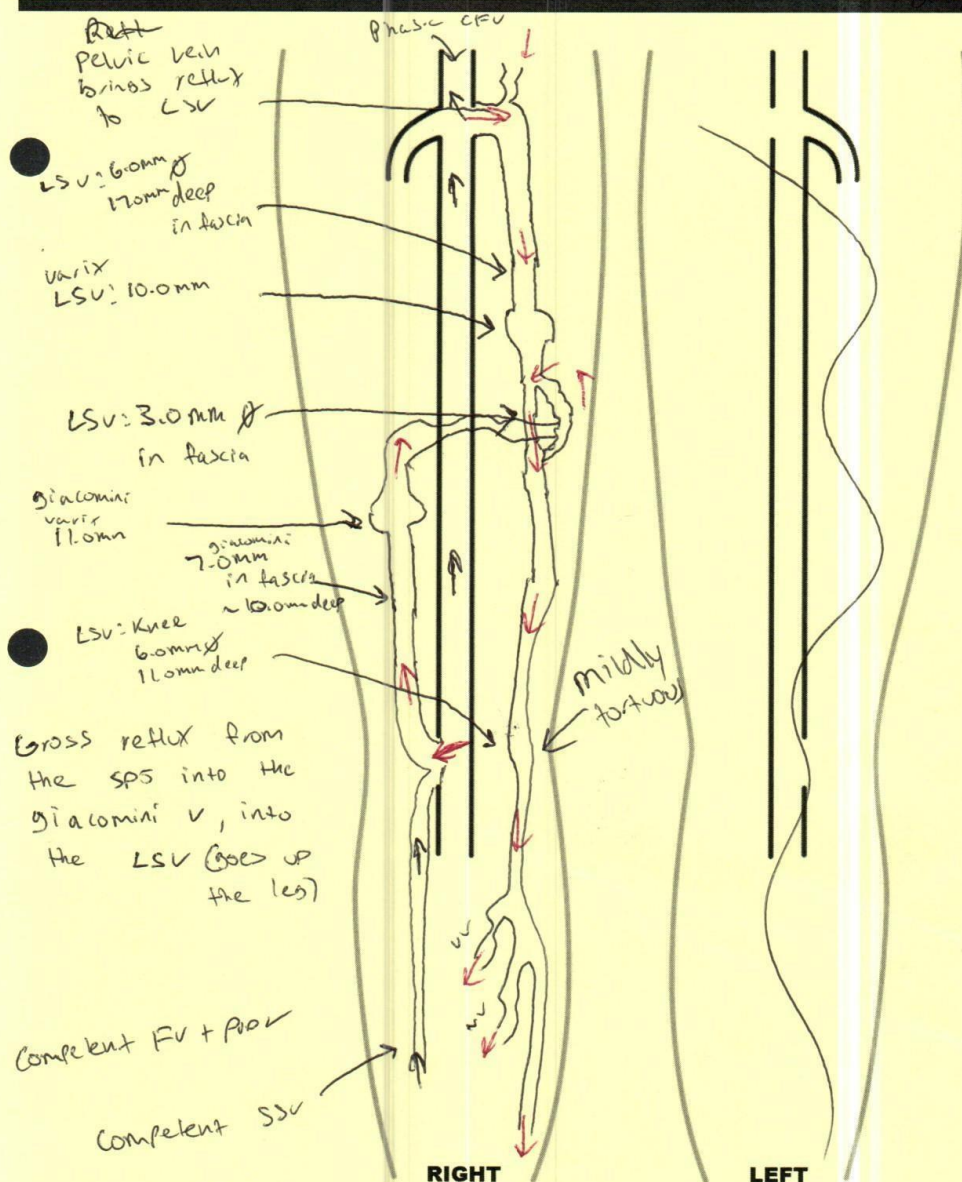 Phasic CFV
Pelvic vein
brings reflux
to LSV
LSV: 6.0mm Ø
17.0mm deep
in fascia
varix
LSV: 10.0mm
LSV: 3.0mm Ø
in fascia
giacomini
varix
11.0mm
giacomini
7.0mm
in fascia
~10.0mm deep
LSV: Knee
6.0mm Ø
11.0mm deep
mildly
tortuous
Gross reflux from
the SPJ into the
giacomini v, into
the LSV (goes up
the leg)
VV
VV
Competent FV + POPV
Competent SSV
RIGHT
LEFT